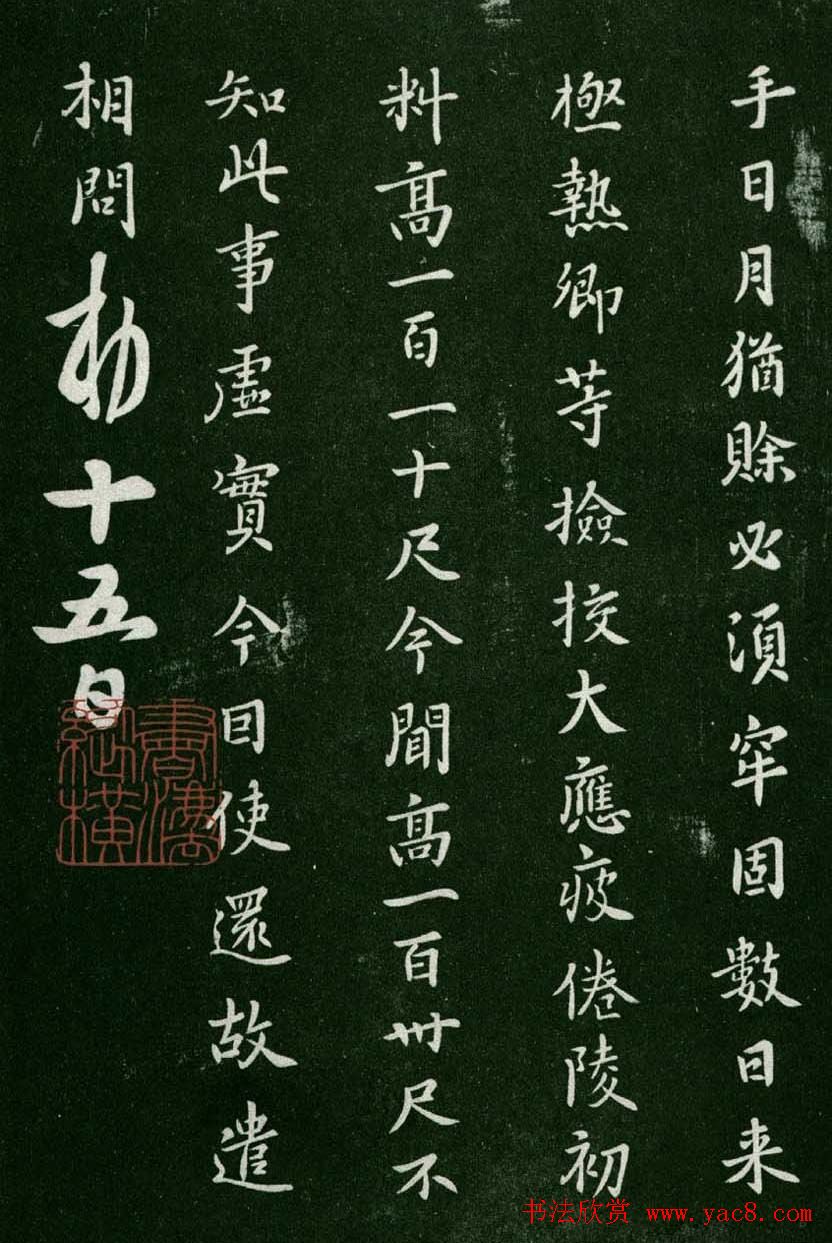 手日月猶賒必須牢固數日来
極熱卿等撿挍大應疲倦陵初
料高一百一十尺今聞高一百卅尺不
知此事虛實今因使還故遣
相問勑十五日
書譜縱橫
书法欣赏 www.yac8.com